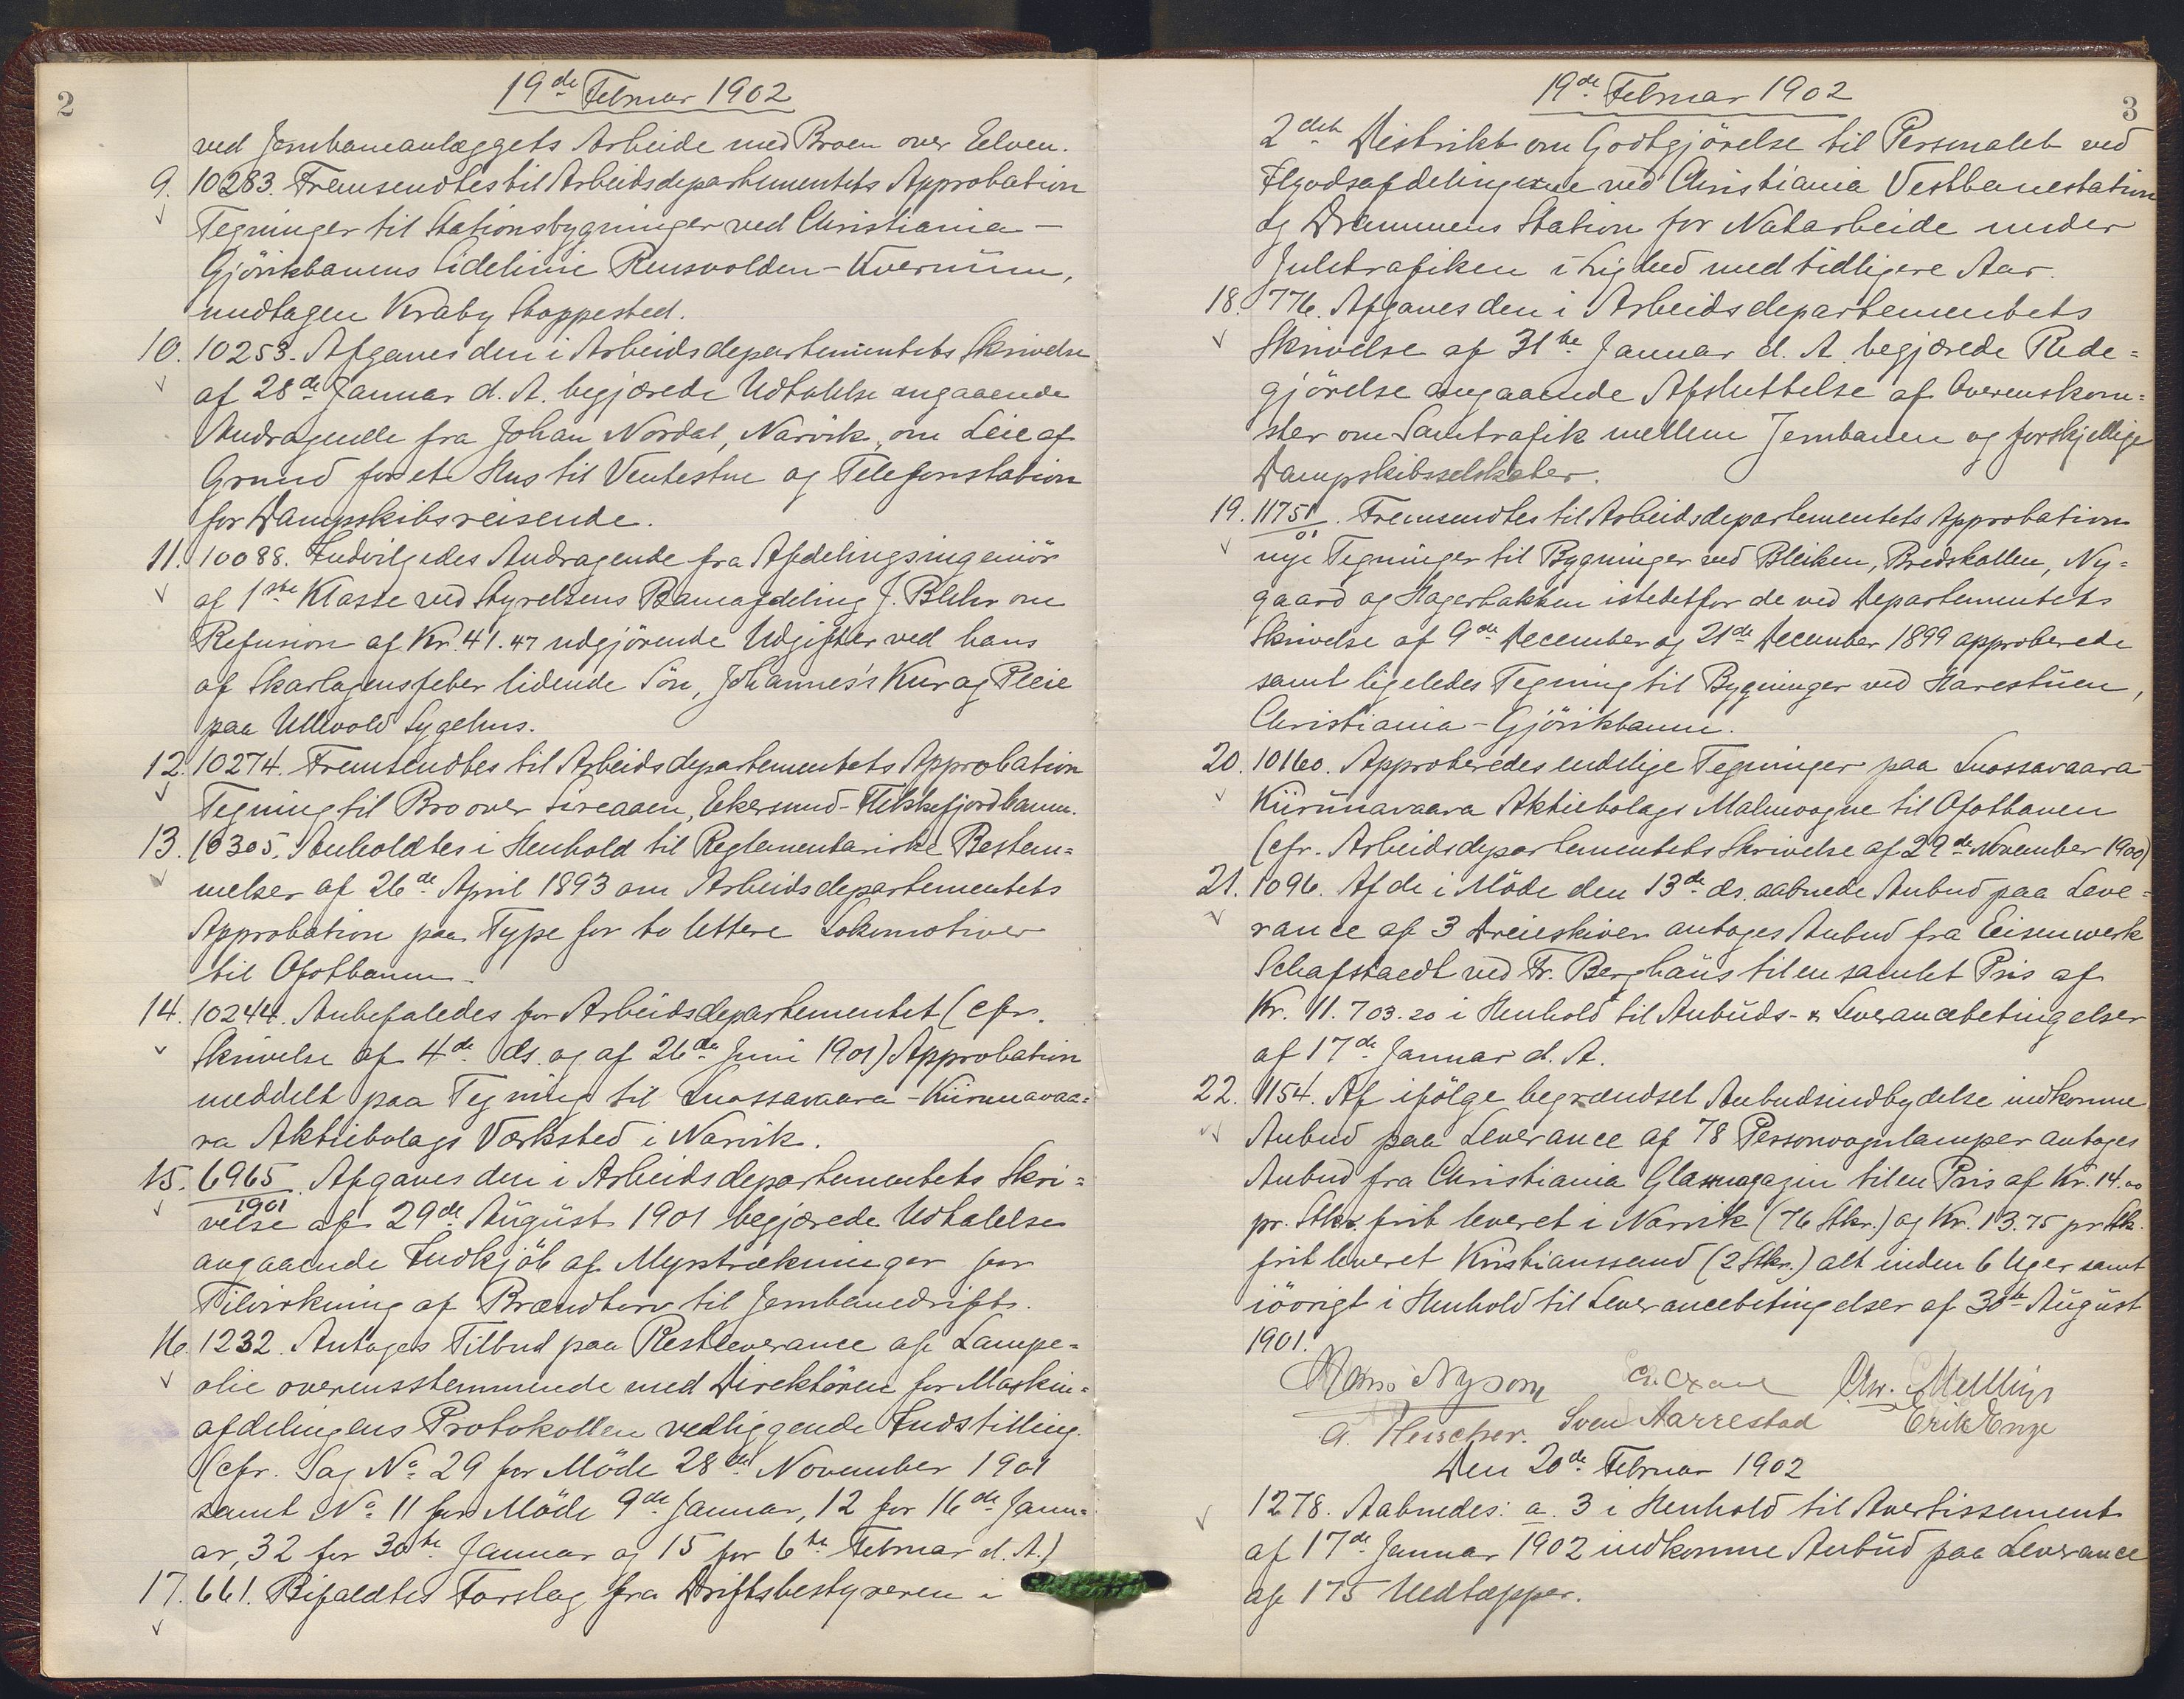 2
19de Februar 1902
ved Jernbaneanlæggets Arbeide med Broen over Eelven.
9. 10283. Fremsendtes til Arbeidsdepartementets Approbation
Tegninger til Stationsbygninger ved Christiania-
Gjövikbanens Sidelinie Reinsvolden-Kværnum,
undtagen Kraby Stoppested.
10. 10253. Afgaves den i Arbeidsdepartementets Skrivelse
af 28de Januar d. A. begjærede Udtalelse angaaende
Andragende fra Johan Nordal, Narvik, om Leie af
Grund for et Hus til Ventestue og Telefonstation
for Dampskibsreisende.
11. 10088. Indvilgedes Andragende fra Afdelingsingeniör
af 1ste Klasse ved Styrelsens Baneafdeling J. Blehr om
Refusion af Kr. 41.47 udgjörende Udgifter ved hans
af Skarlagensfeber lidende Sön, Johannes's Kur og Pleie
paa Ullevold Sygehus.
12. 10274. Fremsendtes til Arbeidsdepartementets Approbation
Tegning til Bro over Sireaaen, Ekersund-Flekkefjordbanen.
13. 10305. Anholdtes i Henhold til Reglementariske Bestem=
melser af 26de April 1893 om Arbeidsdepartementets
Approbation paa Type for to lettere Lokomotiver
til Ofotbanen.
14. 10244. Anbefaledes for Arbeidsdepartementet (cfr.
Skrivelse af 4de ds. og af 26de Juni 1901) Approbation
meddelt paa Tegning til Luossavaara-Kiirunavaa=
ra Aktiebolags Værksted i Narvik.
15. 6965/1901. Afgaves den i Arbeidsdepartementets Skri=
velse af 29de August 1901 begjærede Udtalelse
angaaende Indkjöb af Myrstrækninger for
Tilvirkning af Brændtorv til Jernbanedrift.
16. 1232. Antoges Tilbud paa Restleverance af Lampe=
olie overensstemmende med Direktören for Maskin=
afdelingens Protokollen vedliggende Indstilling.
(cfr. Sag No 29 for Möde 28de November 1901
samt No 11 for Möde 9de Januar, 12 for 16de Janu=
ar, 32 for 30te Januar og 15 for 6te Februar d. A.)
17. 661. Bifaldtes Forslag fra Driftsbestyreren i
19de Februar 1902
3
2det Distrikt om Godtgjörelse til Personalet ved
Ilgodsafdelingerne ved Christiania Vestbanestation
og Drammens Station for Natarbeide under
Juletrafiken i Lighed med tidligere Aar.
18. 776. Afgaves den i Arbeidsdepartementets
Skrivelse af 31te Januar d. A. begjærede Rede=
gjörelse angaaende Afsluttelse af Overenskom=
ster om Samtrafik mellem Jernbanen og forskjellige
Dampskibsselskaber.
19. 11751/01. Fremsendtes til Arbeidsdepartementets Approbation
nye Tegninger til Bygninger ved Bleiken, Bredskallen, Ny=
gaard og Hagerbakken istedetfor de ved Departementets
Skrivelse af 9de December og 21de December 1899 approberede
samt ligeledes Tegning til Bygninger ved Harestuen,
Christiania-Gjövikbanen.
20. 10160. Approberedes endelige Tegninger paa Luossavaara-
Kiirunavaara Aktiebolags Malmvogne til Ofotbanen
(cfr. Arbeidsdepartementets Skrivelse af 29de November 1900)
21. 1096. Af de i Möde den 13de ds. aabnede Anbud paa Leve=
rance af 3 Dreieskiver antoges Anbud fra Eisenwerk
Schafstaedt ved Fr. Berghaus til en samlet Pris af
Kr. 11.703.20 i Henhold til Anbuds- & Leverancebetingelser
af 17de Januar d. A.
22. 1154. Af ifölge begrændset Anbudsindbydelse indkomne
Anbud paa Leverance af 78 Personvognlamper antoges
Anbud fra Christiania Glasmagazin til en Pris af Kr. 14.00
pr. Stk. frit leveret i Narvik (76 Stkr.) og Kr. 13.75 pr Stk.
frit leveret Kristianssand (2 Stkr.) alt inden 6 Uger samt
iövrigt i Henhold til Leverancebetingelser af 30te August
1901.
Hans Nysom Chr. Melbye
A. Fleischer. Sven Aarrestad Erik Enge
Den 20de Februar 1902
1278. Aabnedes: a. 3 i Henhold til Avertissement
af 17de Januar 1902 indkomne Anbud paa Leverance
af 175 Uldtæpper.